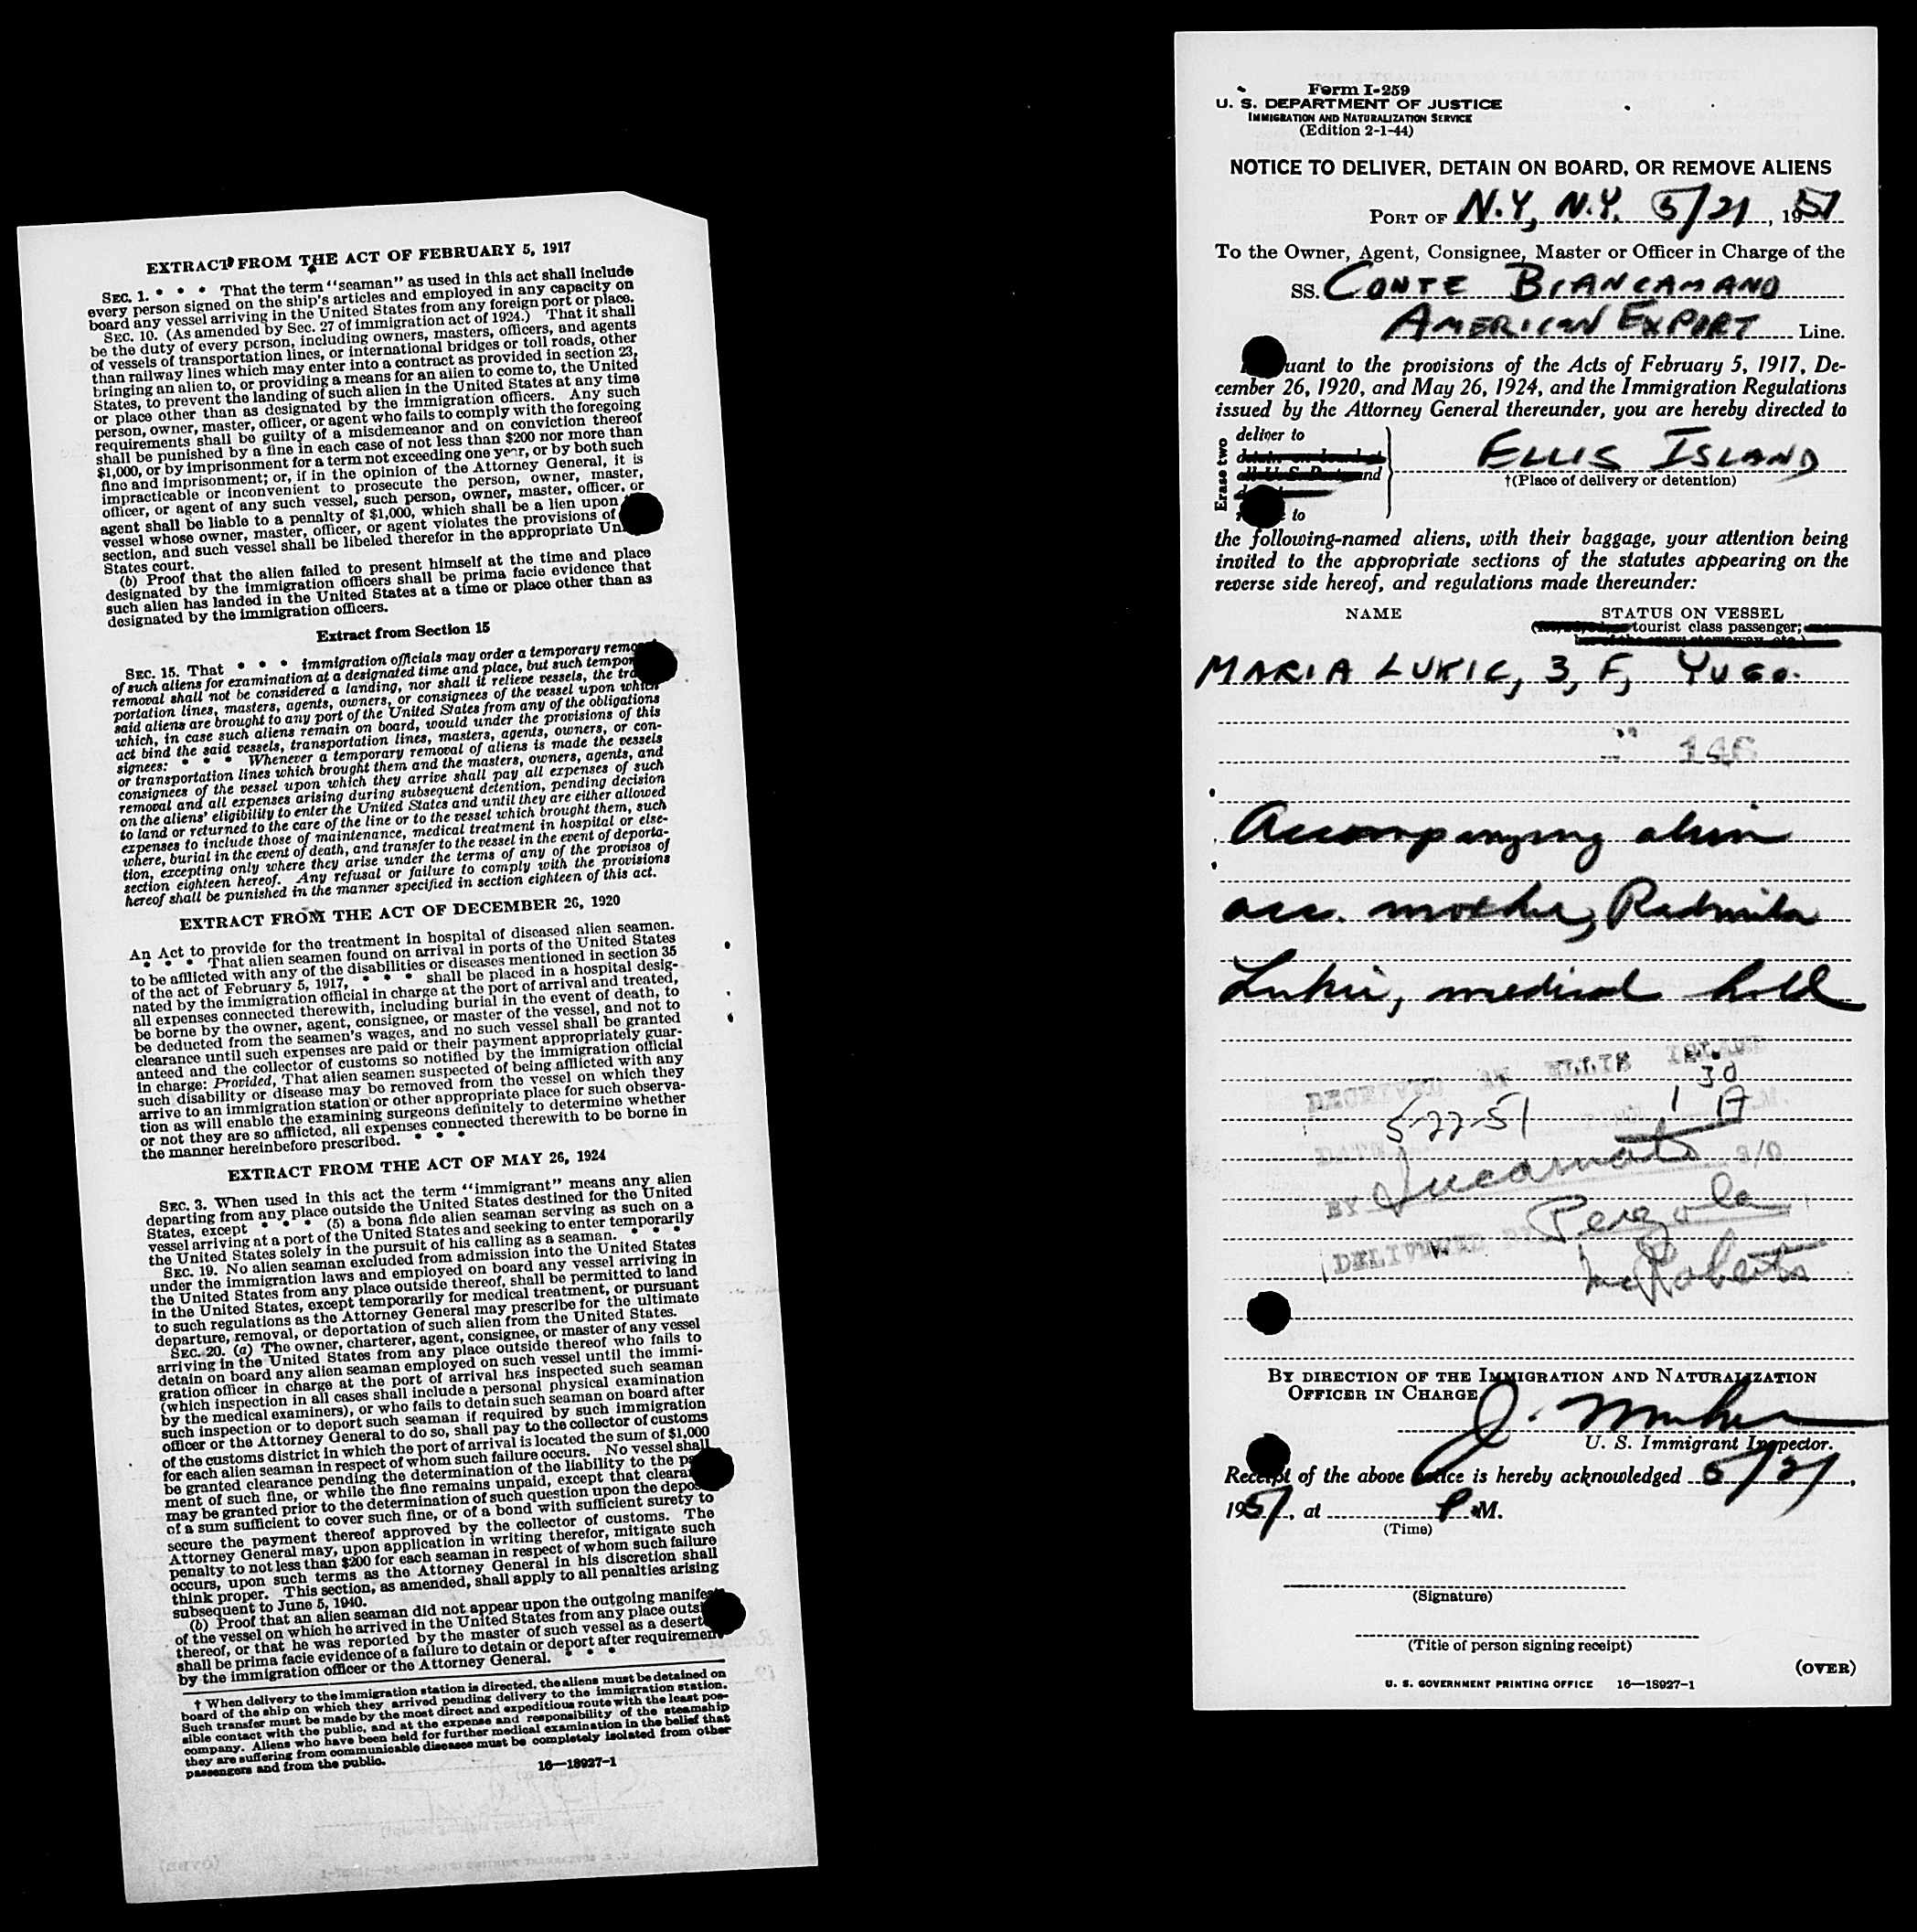 EXTRACT FROM THE ACT OF FEBRUARY 5, 1917
SEC. 1. * * * That the term "seaman" as used in this act shall include
every person signed on the ship's articles and employed in any capacity on
board any vessel arriving in the United States from any foreign port or place.
SEC. 10. (As amended by Sec. 27 of immigration act of 1924.) That it shall
be the duty of every person, including owners, masters, officers, and agents
of vessels of transportation lines, or international bridges or toll roads, other
than railway lines which may enter into a contract as provided in section 23,
bringing an alien to, or providing a means for an alien to come to, the United
States, to prevent the landing of such alien in the United States at any time
or place other than as designated by the immigration officers. Any such
person, owner, master, officer, or agent who fails to comply with the foregoing
requirements shall be guilty of a misdemeanor and on conviction thereof
shall be punished by a fine in each case of not less than $200 nor more than
$1,000, or by imprisonment for a term not exceeding one year, or by both such
fine and imprisonment; or, if in the opinion of the Attorney General, it is
impracticable or inconvenient to prosecute the person, owner, master,
officer, or agent of any such vessel, such person, owner, master, officer, or
agent shall be liable to a penalty of $1,000, which shall be a lien upon
vessel whose owner, master, officer, or agent violates the provisions of
section, and such vessel shall be libeled therefor in the appropriate Un
States court.
(b) Proof that the alien failed to present himself at the time and place
designated by the immigration officers shall be prima facie evidence that
such alien has landed in the United States at a time or place other than as
designated by the immigration officers.
Extract from Section 15
SEC. 15. That * * * immigration officials may order a temporary remo
of such aliens for examination at a designated time and place, but such tempor
removal shall not be considered a landing, nor shall it relieve vessels, the tra
portation lines, masters, agents, owners, or consignees of the vessel upon which
said aliens are brought to any port of the United States from any of the obligations
which, in case such aliens remain on board, would under the provisions of this
act bind the said vessels, transportation lines, masters, agents, owners, or con-
signees: * * * Whenever a temporary removal of aliens is made the vessels
or transportation lines which brought them and the masters, owners, agents, and
consignees of the vessel upon which they arrive shall pay all expenses of such
removal and all expenses arising during subsequent detention, pending decision
on the aliens' eligibility to enter the United States and until they are either allowed
to land or returned to the care of the line or to the vessel which brought them, such
expenses to include those of maintenance, medical treatment in hospital or else-
where, burial in the event of death, and transfer to the vessel in the event of deporta-
tion, excepting only where they arise under the terms of any of the provisos of
section eighteen hereof. Any refusal or failure to comply with the provisions
hereof shall be punished in the manner specified in section eighteen of this act.
EXTRACT FROM THE ACT OF DECEMBER 26, 1920
An Act to provide for the treatment in hospital of diseased alien seamen.
* * * That alien seamen found on arrival in ports of the United States
to be afflicted with any of the disabilities or diseases mentioned in section 35
of the act of February 5, 1917, * * * shall be placed in a hospital desig-
nated by the immigration official in charge at the port of arrival and treated,
all expenses connected therewith, including burial in the event of death, to
be borne by the owner, agent, consignee, or master of the vessel, and not to
be deducted from the seamen's wages, and no such vessel shall be granted
clearance until such expenses are paid or their payment appropriately guar-
anteed and the collector of customs so notified by the immigration official
in charge: Provided, That alien seamen suspected of being afflicted with any
such disability or disease may be removed from the vessel on which they
arrive to an immigration station or other appropriate place for such observa-
tion as will enable the examining surgeons definitely to determine whether
or not they are so afflicted, all expenses connected therewith to be borne in
the manner hereinbefore prescribed. * * *
EXTRACT FROM THE ACT OF MAY 26, 1924
SEC. 3. When used in this act the term "immigrant" means any alien
departing from any place outside the United States destined for the United
States, except * * * (5) a bona fide alien seaman serving as such on a
vessel arriving at a port of the United States and seeking to enter temporarily
the United States solely in the pursuit of his calling as a seaman. * * *
SEC. 19. No alien seaman excluded from admission into the United States
under the immigration laws and employed on board any vessel arriving in
the United States from any place outside thereof, shall be permitted to land
in the United States, except temporarily for medical treatment, or pursuant
to such regulations as the Attorney General may prescribe for the ultimate
departure, removal, or deportation of such alien from the United States.
SEC. 20. (a) The owner, charterer, agent, consignee, or master of any vessel
arriving in the United States from any place outside thereof who fails to
detain on board any alien seaman employed on such vessel until the immi-
gration officer in charge at the port of arrival has inspected such seaman
(which inspection in all cases shall include a personal physical examination
by the medical examiners), or who fails to detain such seaman on board after
such inspection or to deport such seaman if required by such immigration
officer or the Attorney General to do so, shall pay to the collector of customs
of the customs district in which the port of arrival is located the sum of $1,000
for each alien seaman in respect of whom such failure occurs. No vessel shall
be granted clearance pending the determination of the liability to the pa
ment of such fine, or while the fine remains unpaid, except that cleara
may be granted prior to the determination of such question upon the depos
of a sum sufficient to cover such fine, or of a bond with sufficient surety to
secure the payment thereof approved by the collector of customs. The
Attorney General may, upon application in writing therefor, mitigate such
penalty to not less than $200 for each seaman in respect of whom such failure
occurs, upon such terms as the Attorney General in his discretion shall
think proper. This section, as amended, shall apply to all penalties arising
subsequent to June 5, 1940.
(b) Proof that an alien seaman did not appear upon the outgoing manifest
of the vessel on which he arrived in the United States from any place outsi
thereof, or that he was reported by the master of such vessel as a desert
shall be prima facie evidence of a failure to detain or deport after requirement
by the immigration officer or the Attorney General. * * *
† When delivery to the immigration station is directed, the aliens must be detained on
board of the ship on which they arrived pending delivery to the immigration station.
Such transfer must be made by the most direct and expeditious route with the least pos-
sible contact with the public, and at the expense and responsibility of the steamship
company. Aliens who have been held for further medical examination in the belief that
they are suffering from communicable diseases must be completely isolated from other
passengers and from the public.
16—18927-1
Form I-259
U. S. DEPARTMENT OF JUSTICE
IMMIGRATION AND NATURALIZATION SERVICE
(Edition 2-1-44)
NOTICE TO DELIVER, DETAIN ON BOARD, OR REMOVE ALIENS
PORT OF N.Y, N.Y. 5/21, 1951
To the Owner, Agent, Consignee, Master or Officer in Charge of the
SS. CONTE BIANCAMANO
AMERICAN EXPORT Line.
uant to the provisions of the Acts of February 5, 1917, De-
cember 26, 1920, and May 26, 1924, and the Immigration Regulations
issued by the Attorney General thereunder, you are hereby directed to
Erase two
deliver to
and
to
ELLIS ISLAND
†(Place of delivery or detention)
the following-named aliens, with their baggage, your attention being
invited to the appropriate sections of the statutes appearing on the
reverse side hereof, and regulations made thereunder:
NAME STATUS ON VESSEL
tourist class passenger;
MARIA LUKIC, 3, F, YUGO.
146
Accompanying alien
acc. mother, Radmila
Lukic, medical hold
RECEIVED AT ELLIS ISLAND
1 30
DATE 5-22-51 A M.
BY S/O
DELIVERED
McRoberts
BY DIRECTION OF THE IMMIGRATION AND NATURALIZATION
OFFICER IN CHARGE
J.
U. S. Immigrant Inspector.
Receipt of the above notice is hereby acknowledged 5/21,
1951, at P. M.
(Time)
(Signature)
(Title of person signing receipt)
(OVER)
U. S. GOVERNMENT PRINTING OFFICE 16—18927-1